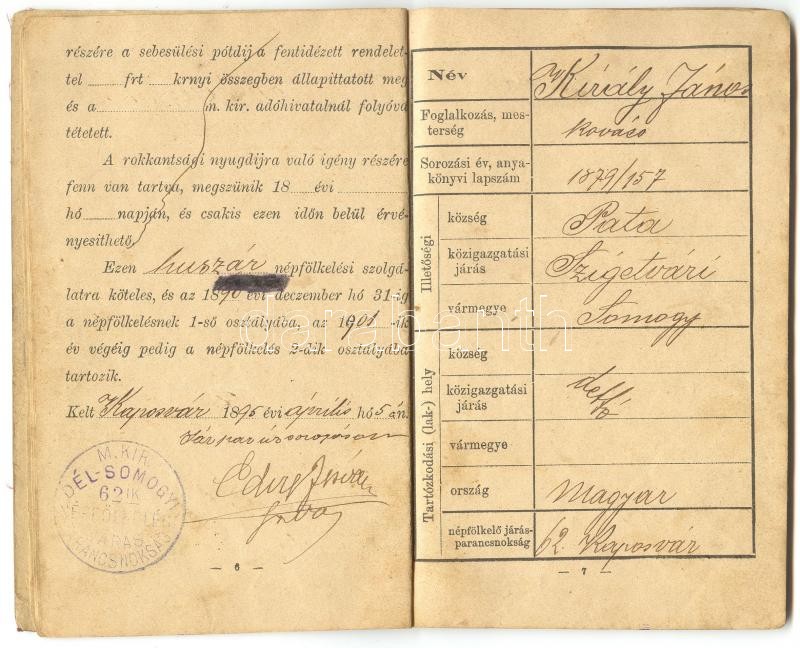 részére a sebesülési pótdija fentidézett rendelet-
tel frt krnyi összegben állapittatott meg
és a m. kir. adóhivatalnál folyóvá
tétetett.
A rokkantsági nyugdijra való igény részére
fenn van tartva, megszünik 18 évi
hó napján, és csakis ezen időn belül érvé-
nyesithető.
Ezen huszár népfölkelési szolgá-
latra köteles, és az 1890 évi deczember hó 31-ig
a népfölkelésnek 1-ső osztályába, az 1901 -ik
év végéig pedig a népfölkelés 2-dik osztályába
tartozik.
Kelt Kaposvár 1895 évi április hó 5 án.
M. KIR.
DÉL-SOMOGYI
62IK
NÉPFÖLKELÉSI
JÁRÁS
PARANCSNOKSÁG
— 6 —
Név Király János
Foglalkozás, mes-
terség kovács
Sorozási év, anya-
könyvi lapszám 1879/157
Illetőségi
község Pata
közigazgatási
járás Szigetvári
vármegye Somogy
Tartózkodási (lak-) hely
község
közigazgatási
járás
vármegye
ország Magyar
népfölkelő járás-
parancsnokság 62. Kaposvár
— 7 —
darabanth